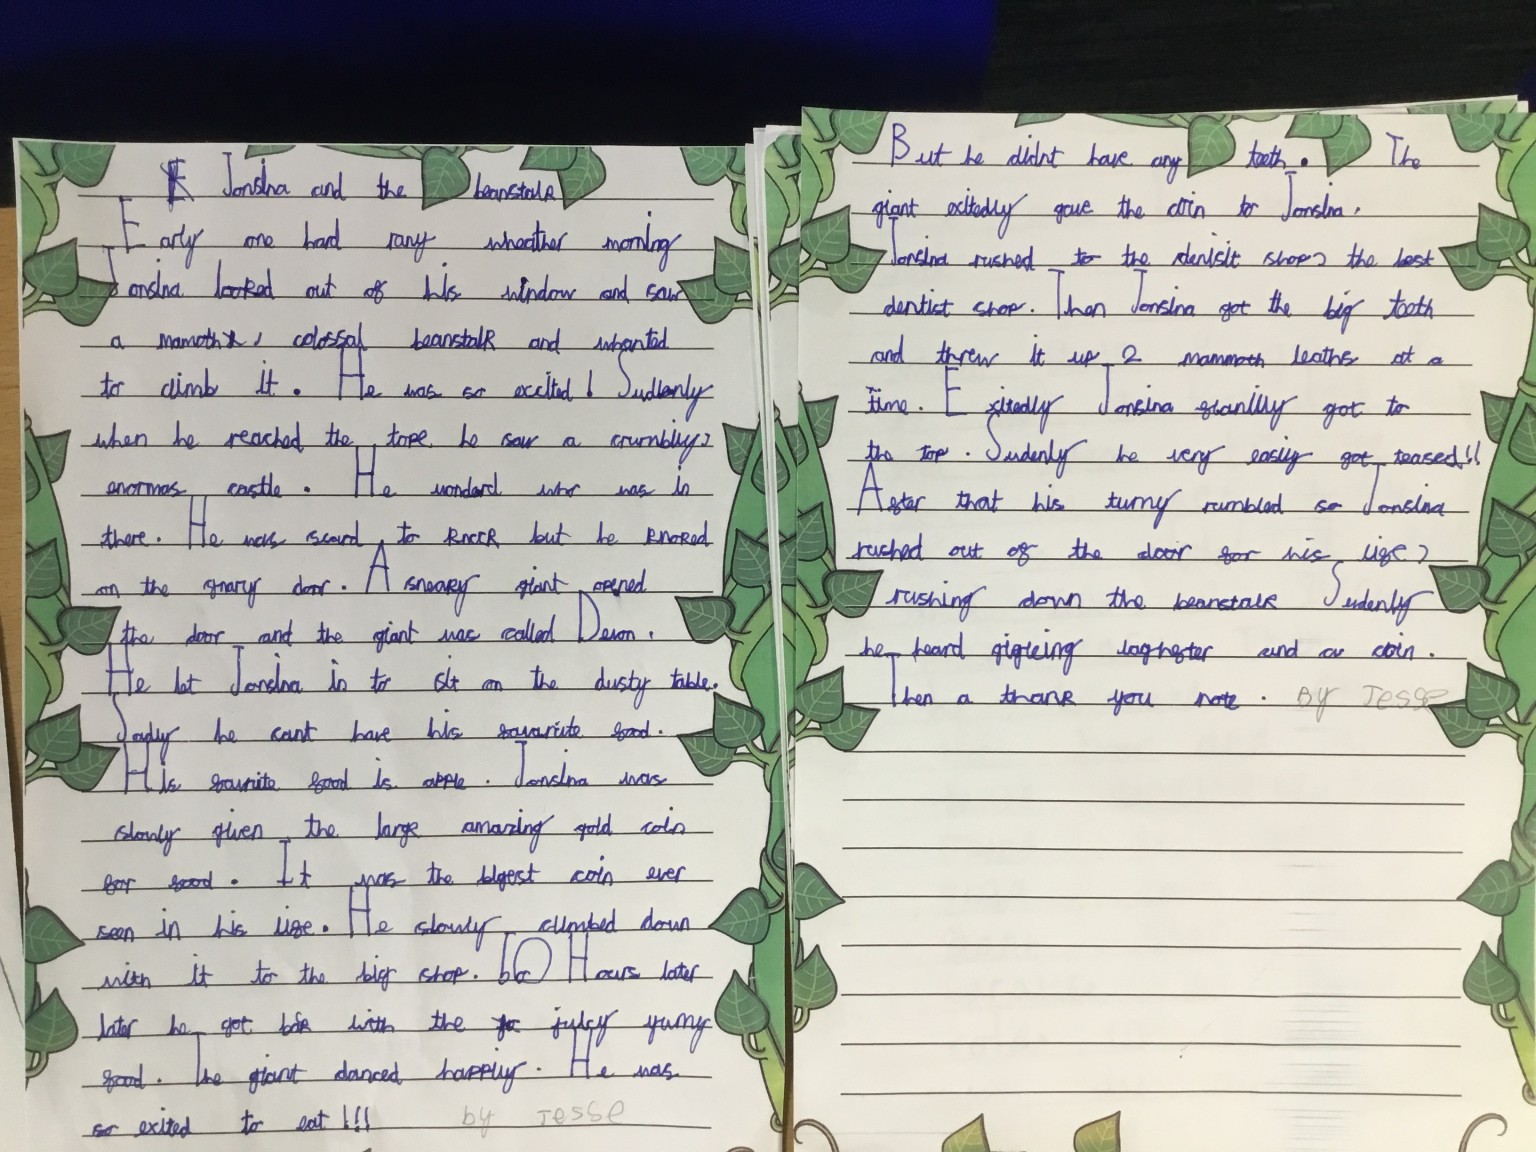 Jonsina and the beanstalk
Early one hard rany wheather morning
Jonsina looked out of his window and saw
a mamoth, colossal beanstalk and whanted
to climb it. He was so excited! Sudlenly
when he reached the tope he saw a crumbliy,
enormas castle. He wondard who was in
there. He was scard to knock but he knoked
on the gnary door. A sneaky giant opened
the door and the giant was called Devon.
He let Jonsina in to sit on the dusty table.
Sadly he cant have his favariute food.
His faurite food is apple. Jonsina was
slowly given the large amazing gold coin
for food. It was the bigest coin ever
seen in his life. He slowly climbed down
with it to the big shop. Hours later
later he got with the juicy yumy
food. The giant danced happliy. He was
so exited to eat!!! by Jesse
But he didnt have any teeth. The
giant exitedly gave the coin to Jonsina.
Jonsina rushed to the denisit shop, the best
dentist shop. Then Jonsina got the big tooth
and threw it up 2 mammoth leaths at a
time. Exitedly Jonsina got to
the top. Sudenly he very easily got teased!!
After that his tumy rumbled so Jonsina
rushed out of the door for his life,
rushing down the beanstalk Sudenly
he heard gigleing laghfter and a coin.
Then a thank you note. By Jesse